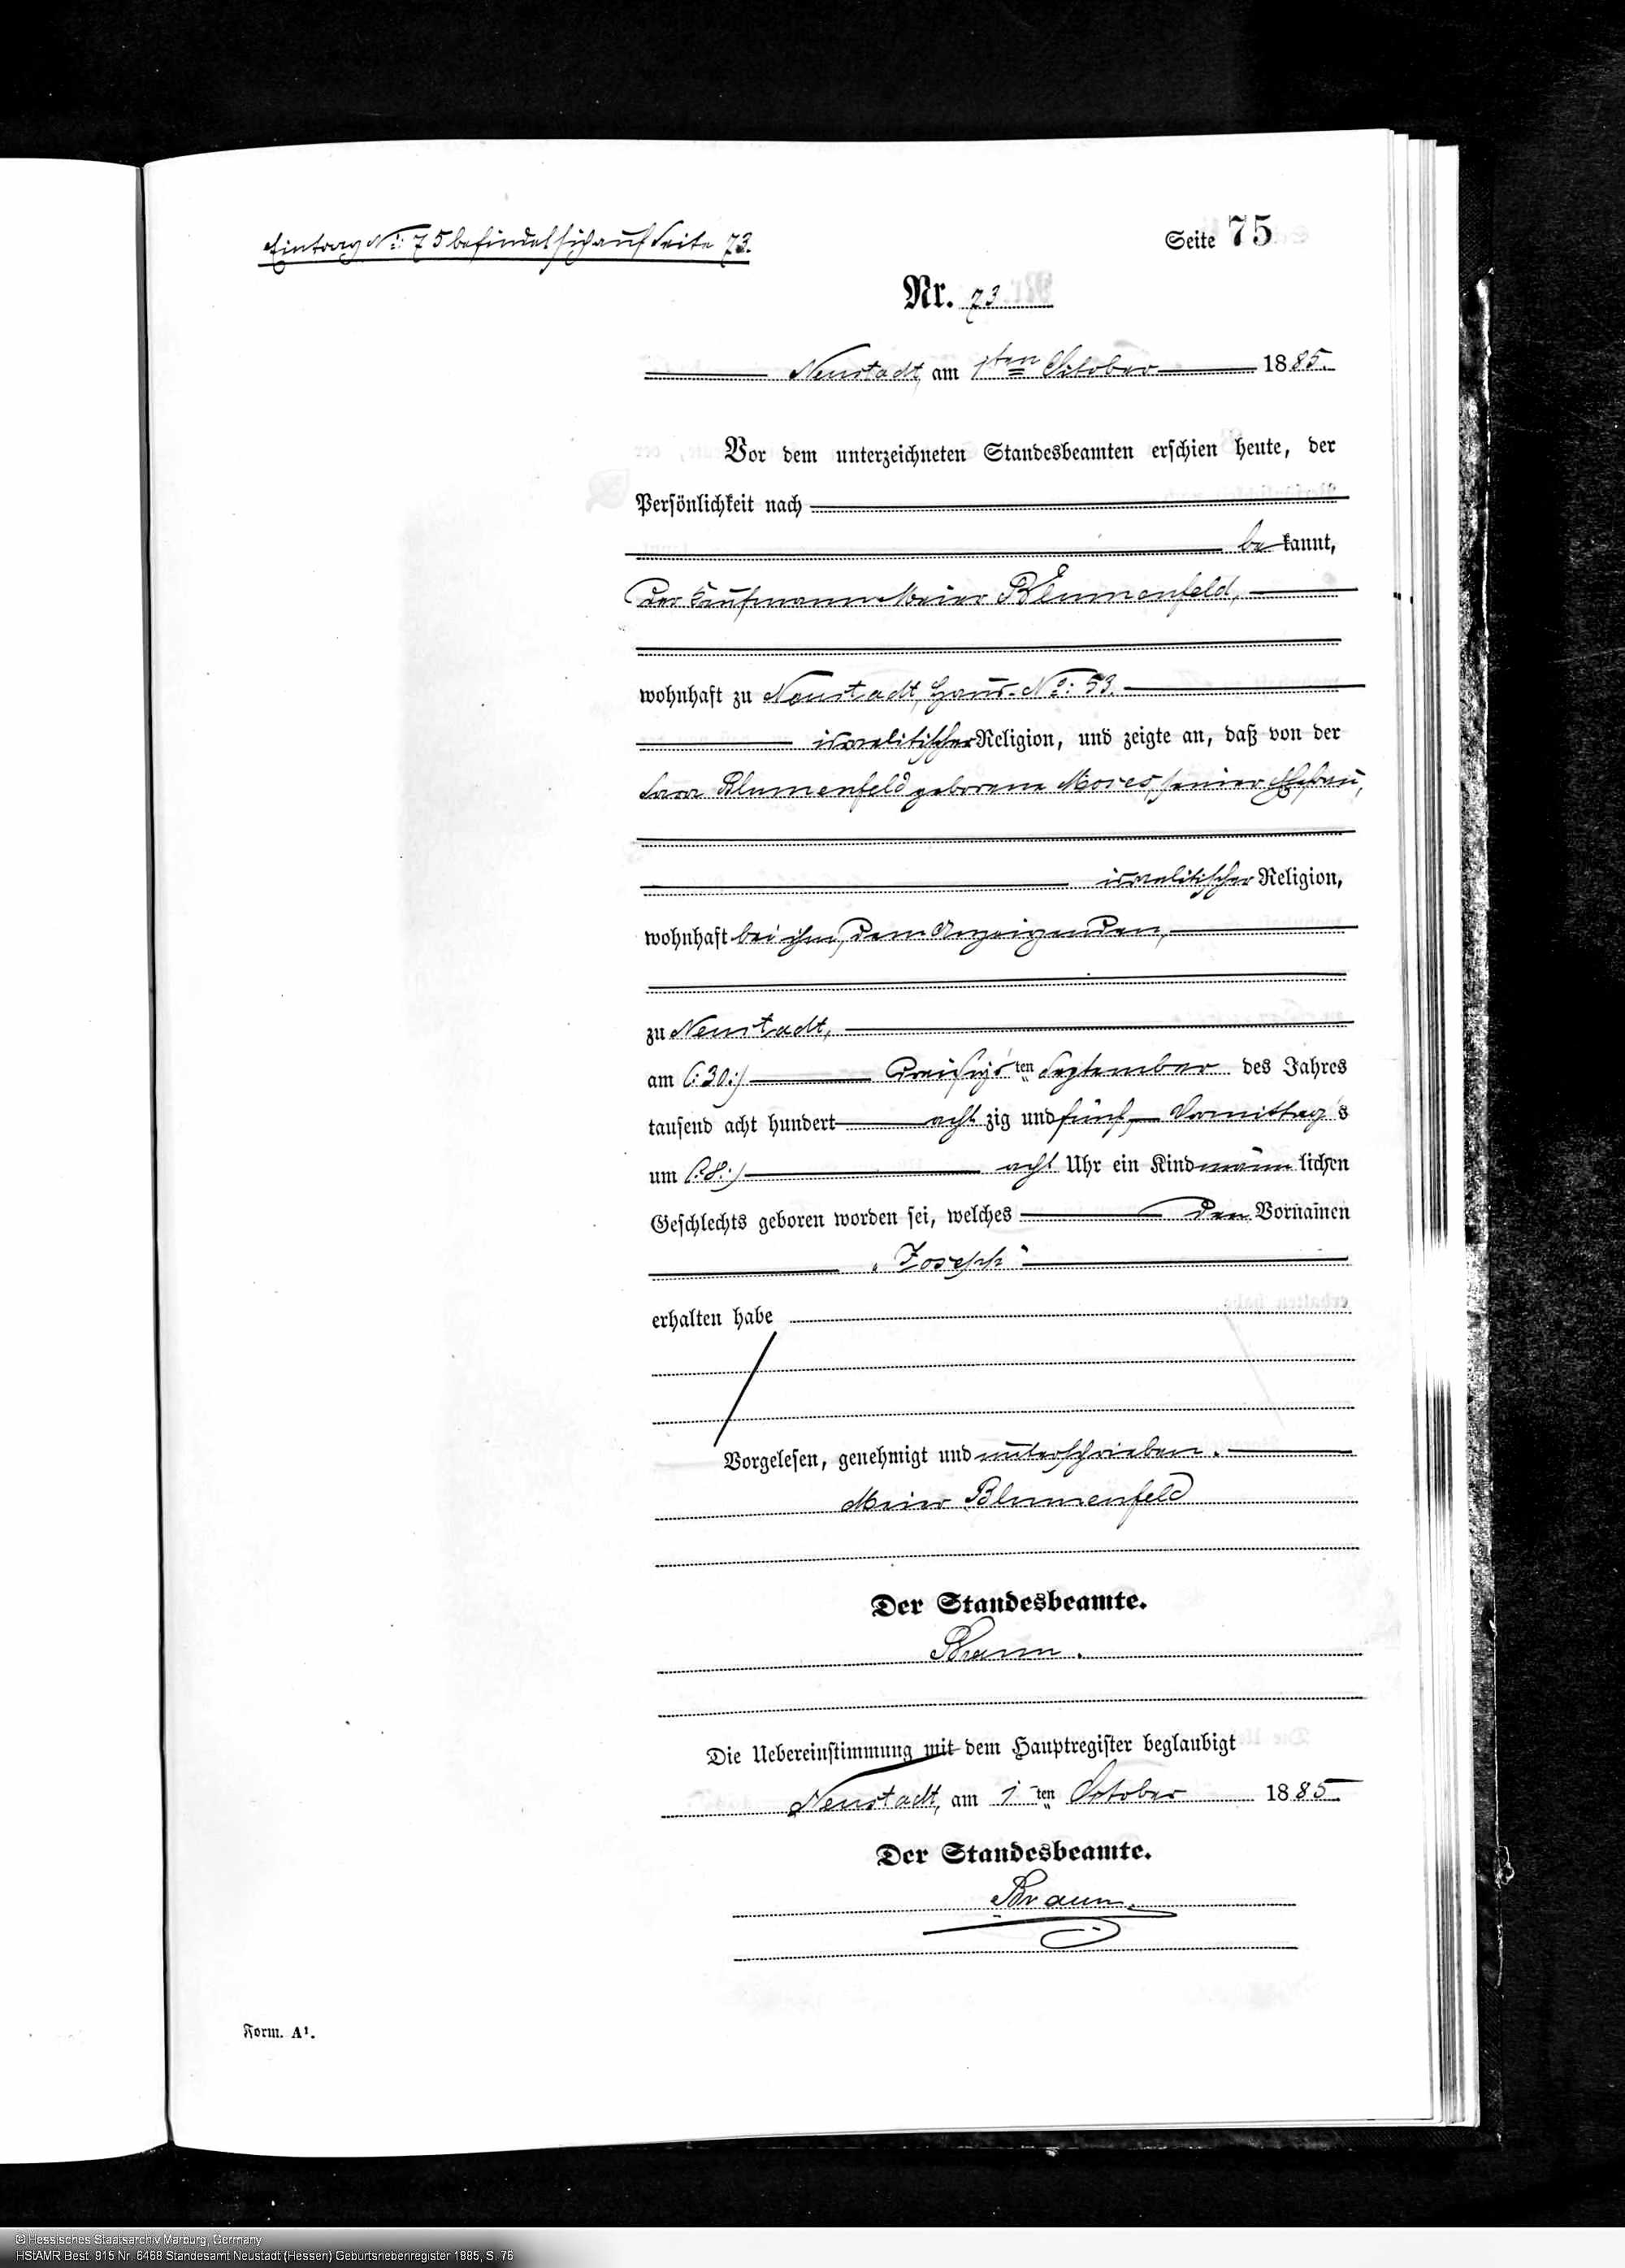 Eintrag No: 75 befindet sich auf Seite 73.
Seite 75
Nr. 73
Neustadt, am 1ten October 1885.
Vor dem unterzeichneten Standesbeamten erschien heute, der
Persönlichkeit nach
be kannt,
der Kaufmann Meier Blumenfeld,
wohnhaft zu Neustadt, Haus-No: 53.
israelitischer Religion, und zeigte an, daß von der
Sara Blumenfeld geborene Moses, seiner Ehefrau,
israelitischer Religion,
wohnhaft bei ihm, dem Anzeigenden,
zu Neustadt,
am (:30:) dreißigsten September des Jahres
tausend acht hundert acht zig und fünf, Vormittags
um (:8:) acht Uhr ein Kind männ lichen
Geschlechts geboren worden sei, welches den Vornamen
„Joseph"
erhalten habe
Vorgelesen, genehmigt und unterschrieben.
Meier Blumenfeld
Der Standesbeamte.
Braun.
Die Uebereinstimmung mit dem Hauptregister beglaubigt
Neustadt, am 1ten October 1885.
Der Standesbeamte.
Braun.
Form. A¹.
© Hessisches Staatsarchiv Marburg, Germany
HStAMR Best. 915 Nr. 6468 Standesamt Neustadt (Hessen) Geburtsnebenregister 1885, S. 76